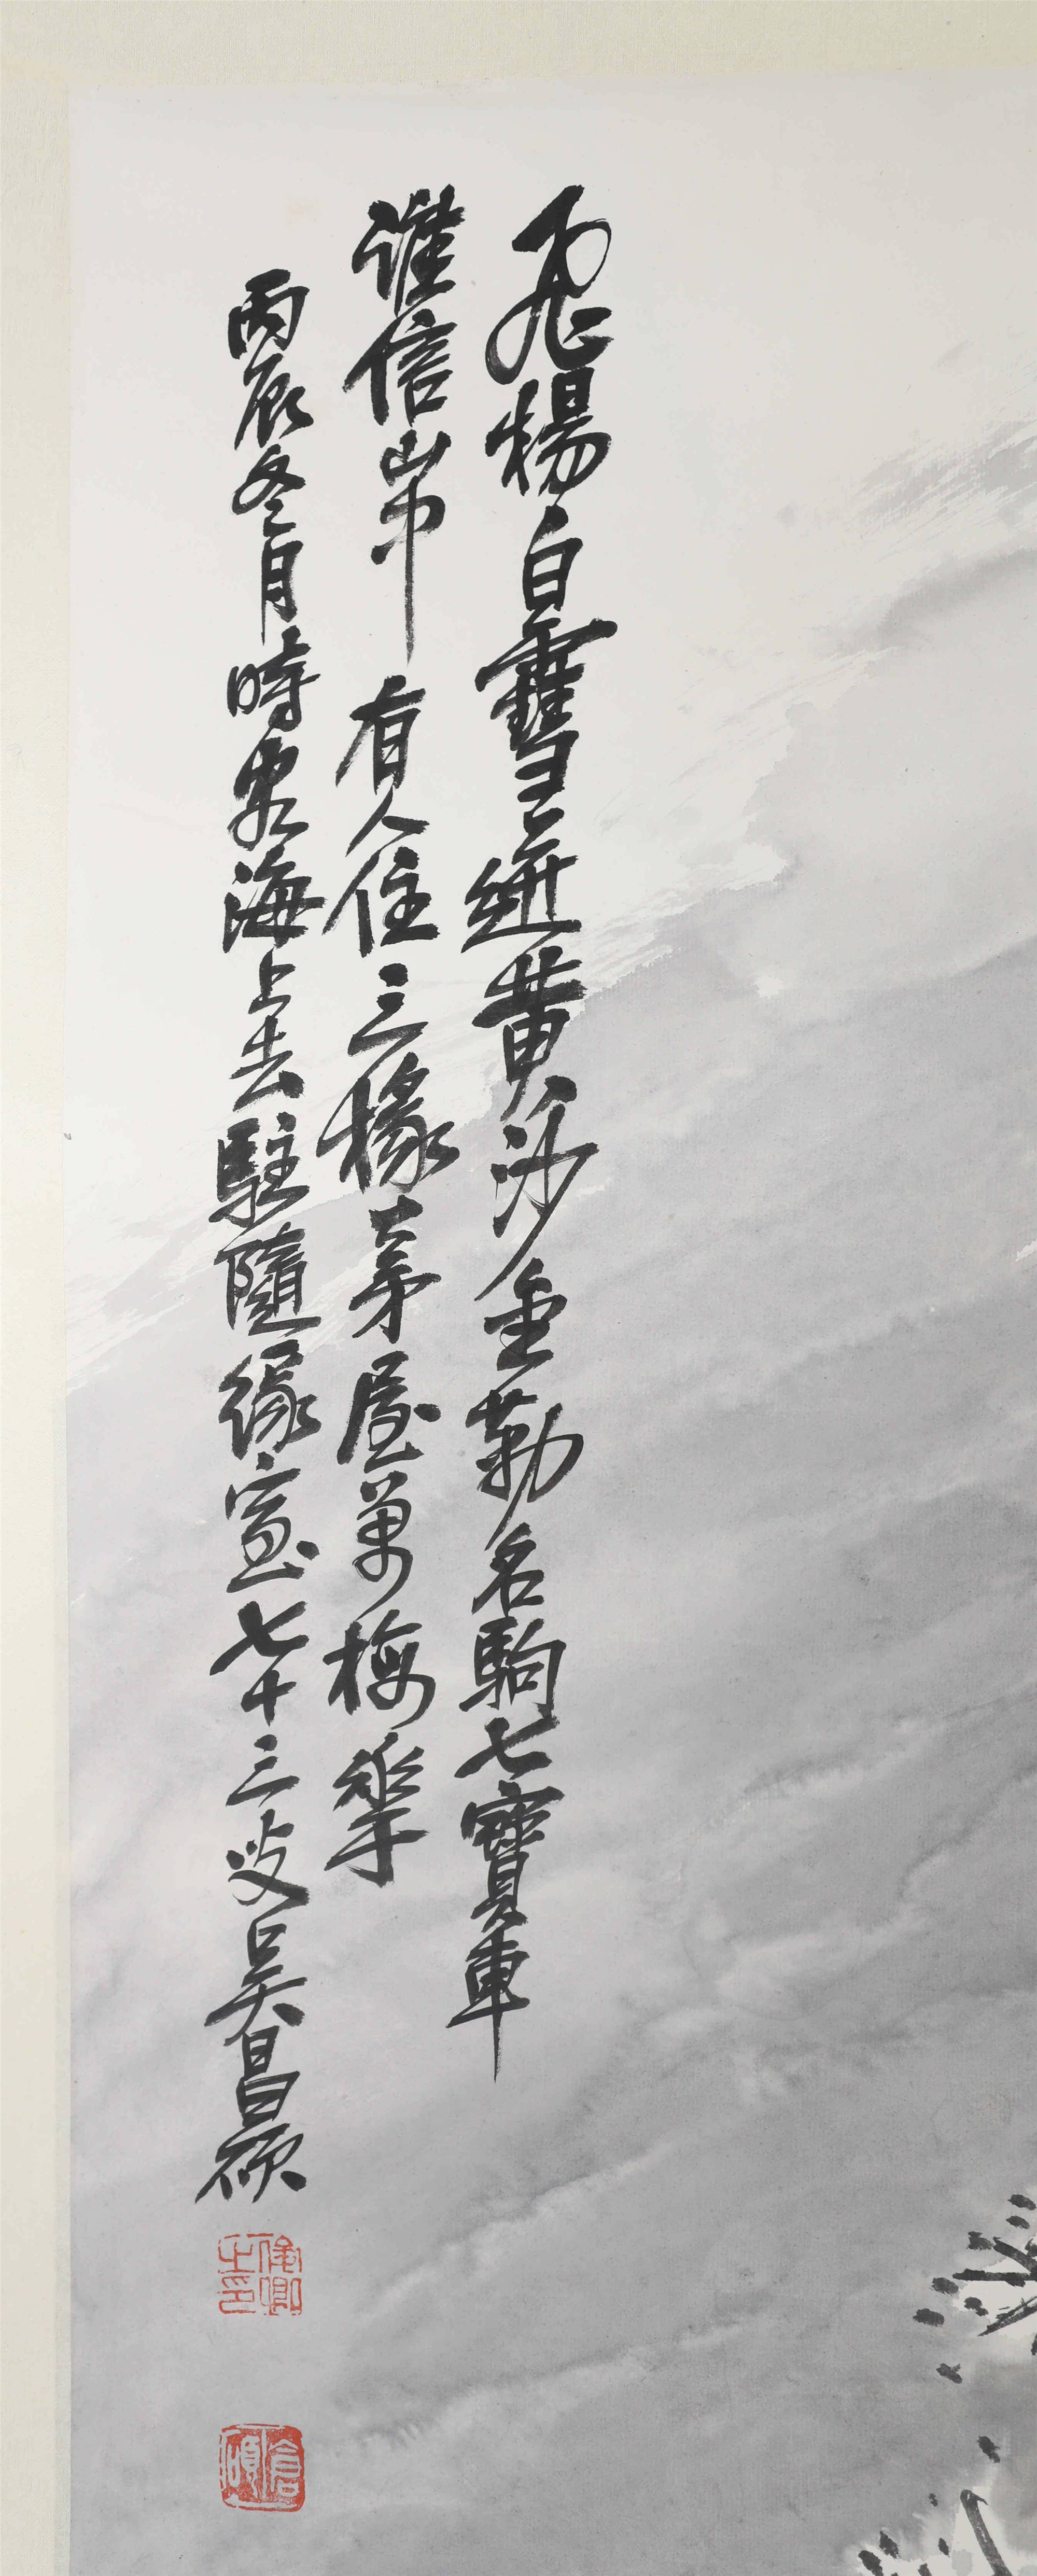 飛楊白雪遊黃沙金勒名駒七寶車
誰信峁有人住三椽茅屋萬梅華
丙辰冬月時客海上去駐隨緣室七十三叟吳昌碩
俊卿之印
倉碩